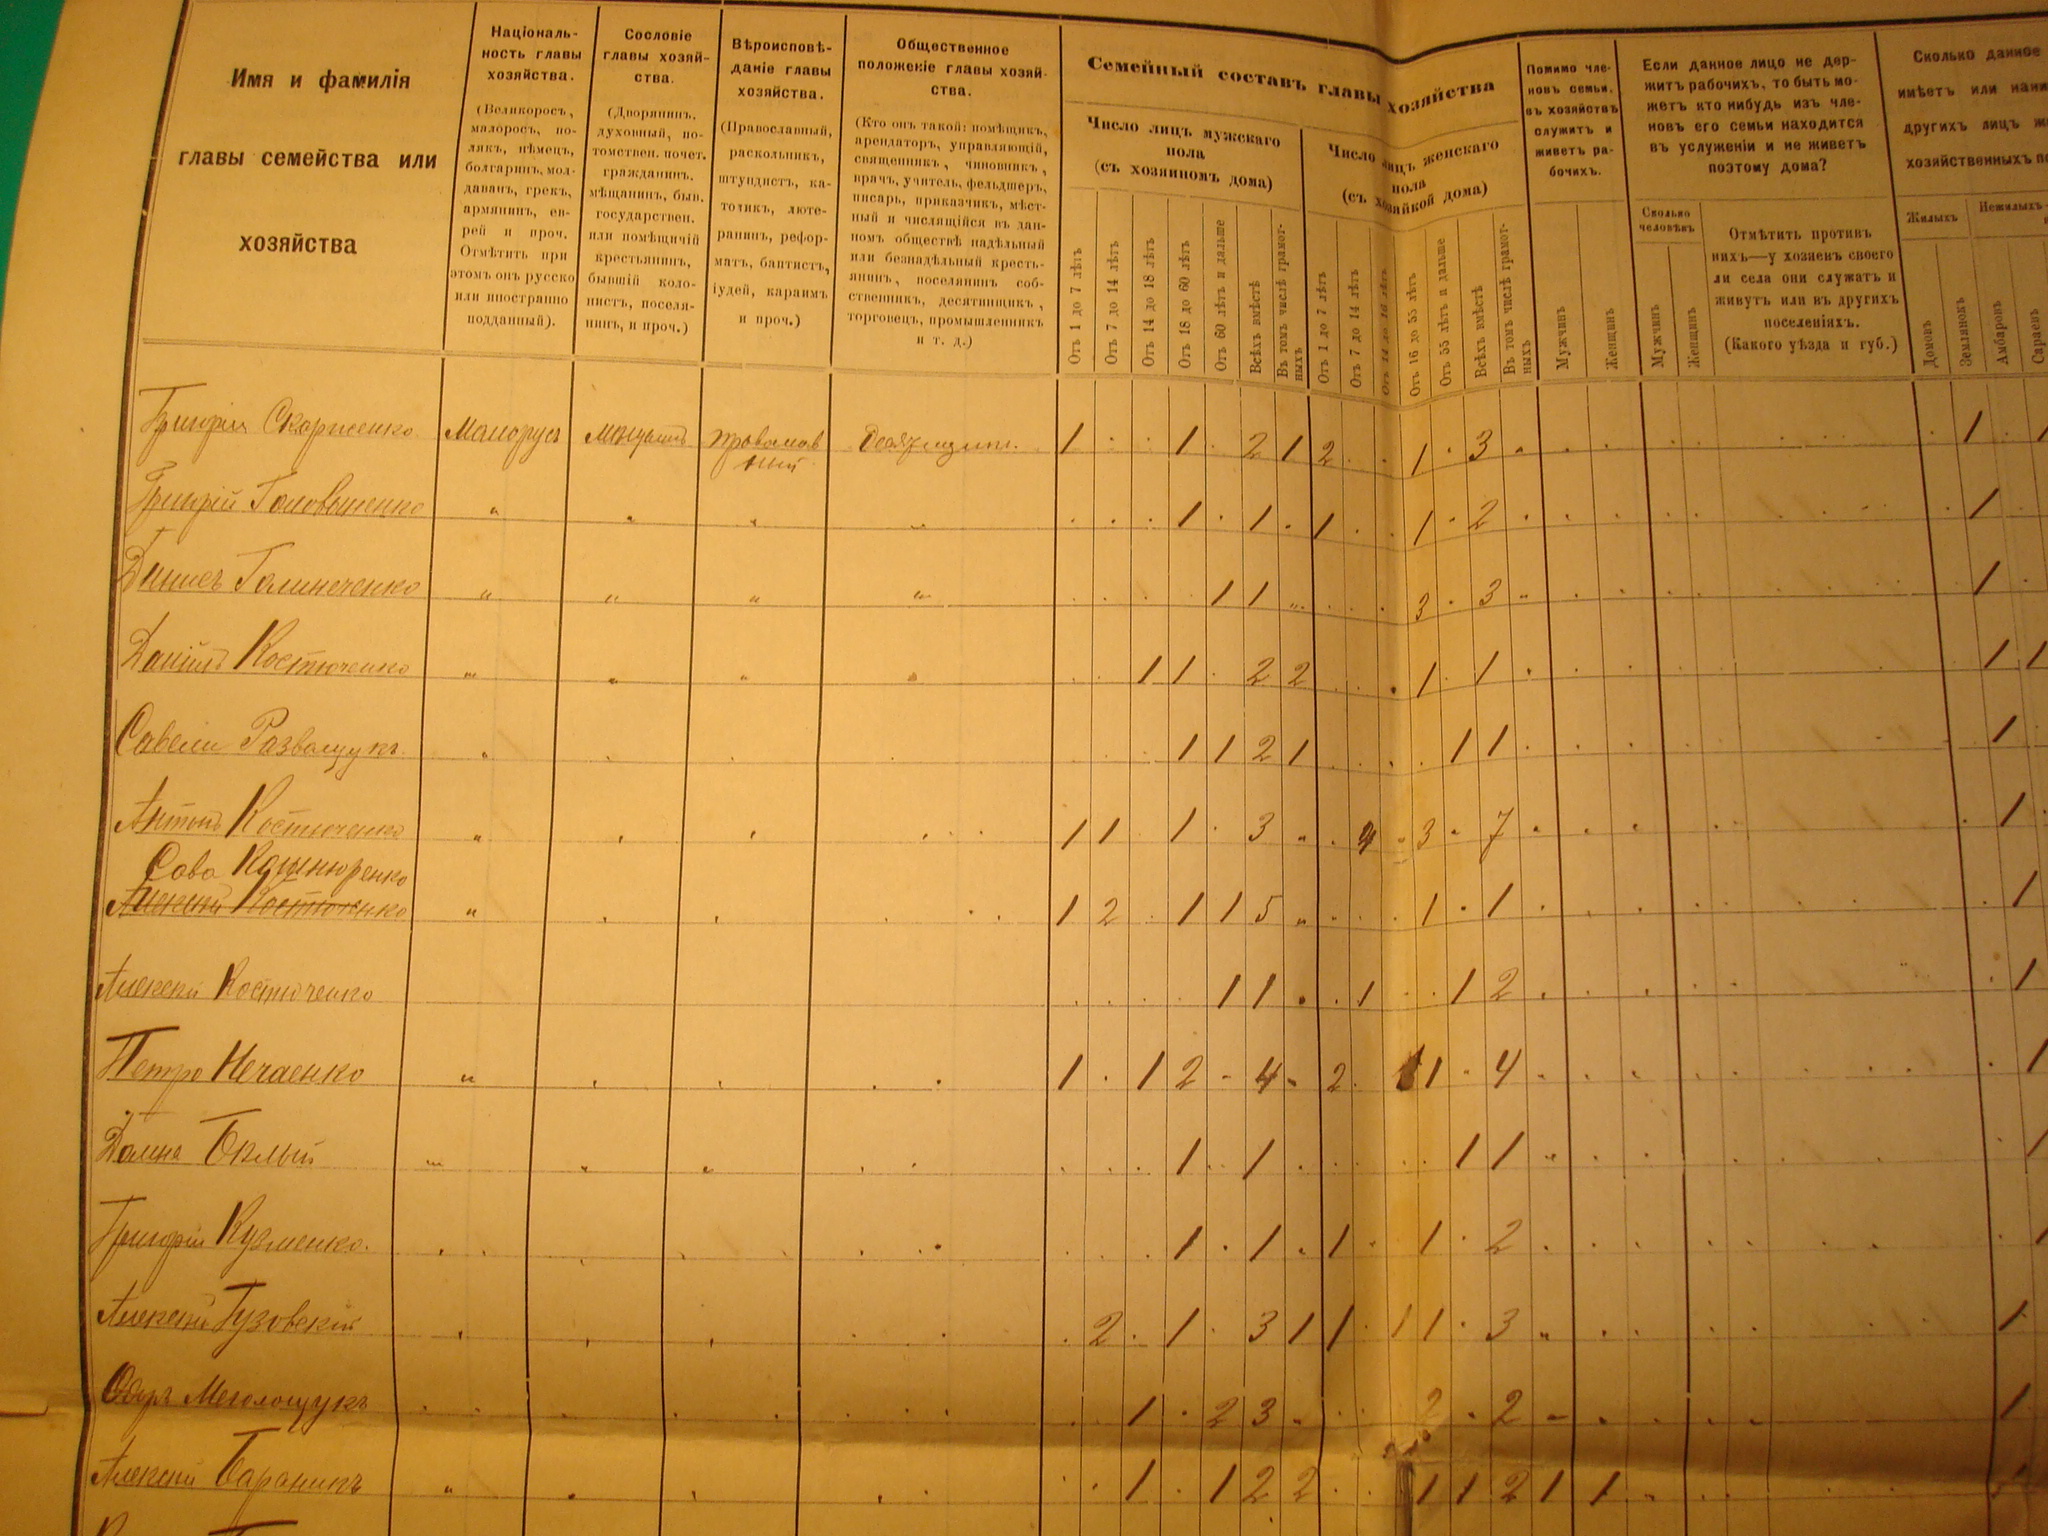 Имя и фамилія
главы семейства или
хозяйства
Національ-
ность главы
хозяйства.
(Великоросъ,
малоросъ, по-
лякъ, нѣмецъ,
болгаринъ, мол-
даванъ, грекъ,
армянинъ, ев-
рей и проч.
Отмѣтить при
этомъ онъ русско
или иностранно
подданный).
Сословіе
главы хозяй-
ства.
(Дворянинъ,
духовный, по-
томствен. почет.
гражданинъ,
мѣщанинъ, быв.
государствен.
или помѣщичій
крестьянинъ,
бывшій коло-
нистъ, поселя-
нинъ, и проч.)
Вѣроисповѣ-
даніе главы
хозяйства.
(Православный,
раскольникъ,
штундистъ, ка-
толикъ, люте-
ранинъ, рефор-
матъ, баптистъ,
іудей, караимъ
и проч.)
Общественное
положеніе главы хозяй-
ства.
(Кто онъ такой: помѣщикъ,
арендаторъ, управляющій,
священникъ, чиновникъ,
врачъ, учитель, фельдшеръ,
писарь, приказчикъ, мѣст-
ный и числящійся въ дан-
номъ обществѣ надѣльный
или безнадѣльный кресть-
янинъ, поселянинъ соб-
ственникъ, десятинщикъ,
торговецъ, промышленникъ
и т. д.)
Семейный составъ главы хозяйства
Число лицъ мужскаго
пола
(съ хозяиномъ дома)
Отъ 1 до 7 лѣтъ
Отъ 7 до 14 лѣтъ
Отъ 14 до 18 лѣтъ
Отъ 18 до 60 лѣтъ
Отъ 60 лѣтъ и дальше
Всѣхъ вмѣстѣ
Въ томъ числѣ грамот-
ныхъ
Число лицъ женскаго
пола
(съ хозяйкой дома)
Отъ 1 до 7 лѣтъ
Отъ 7 до 14 лѣтъ
Отъ 14 до 16 лѣтъ
Отъ 16 до 55 лѣтъ
Отъ 55 лѣтъ и дальше
Всѣхъ вмѣстѣ
Въ томъ числѣ грамот-
ныхъ
Помимо чле-
новъ семьи,
въ хозяйствѣ
служитъ и
живетъ ра-
бочихъ.
Мужчинъ
Женщинъ
Если данное лицо не дер-
житъ рабочихъ, то быть мо-
жетъ кто нибудь изъ чле-
новъ его семьи находится
въ услуженіи и не живетъ
поэтому дома?
Сколько
человѣкъ
Мужчинъ
Женщинъ
Отмѣтить противъ
нихъ—у хозяевъ своего
ли села они служатъ и
живутъ или въ другихъ
поселеніяхъ.
(Какого уѣзда и губ.)
Сколько данное
имѣетъ или
другихъ лицъ
хозяйственныхъ
Жилыхъ
Нежилыхъ
Домовъ
Землянокъ
Амбаровъ
Сараевъ
Григорій Скорженко Малорусъ православ 1 1 2 1 2 1 3 1 1
ный
Григорій 1 1 1 1 2 1
1 1 3 3 1
Даніилъ Костюченко 1 1 2 2 1 1 1 1
Савелій 1 1 2 1 1 1 1
Антонъ Костюченко 1 1 1 3 4 3 7 1
Сава Кошнюренко
Алексей Костюченко 1 2 1 1 5 1 1 1
Алексей Костюченко 1 1 1 1 2 1
Петро Нечаенко 1 1 2 4 2 1 1 4 1
1 1 1 1 1
Григорій Кузменко. 1 1 1 1 2 1
Алексей Гузовскій 2 1 3 1 1 1 1 3 1
1 2 3 2 2 1
Алексей Бараникъ 1 1 2 2 1 1 2 1 1